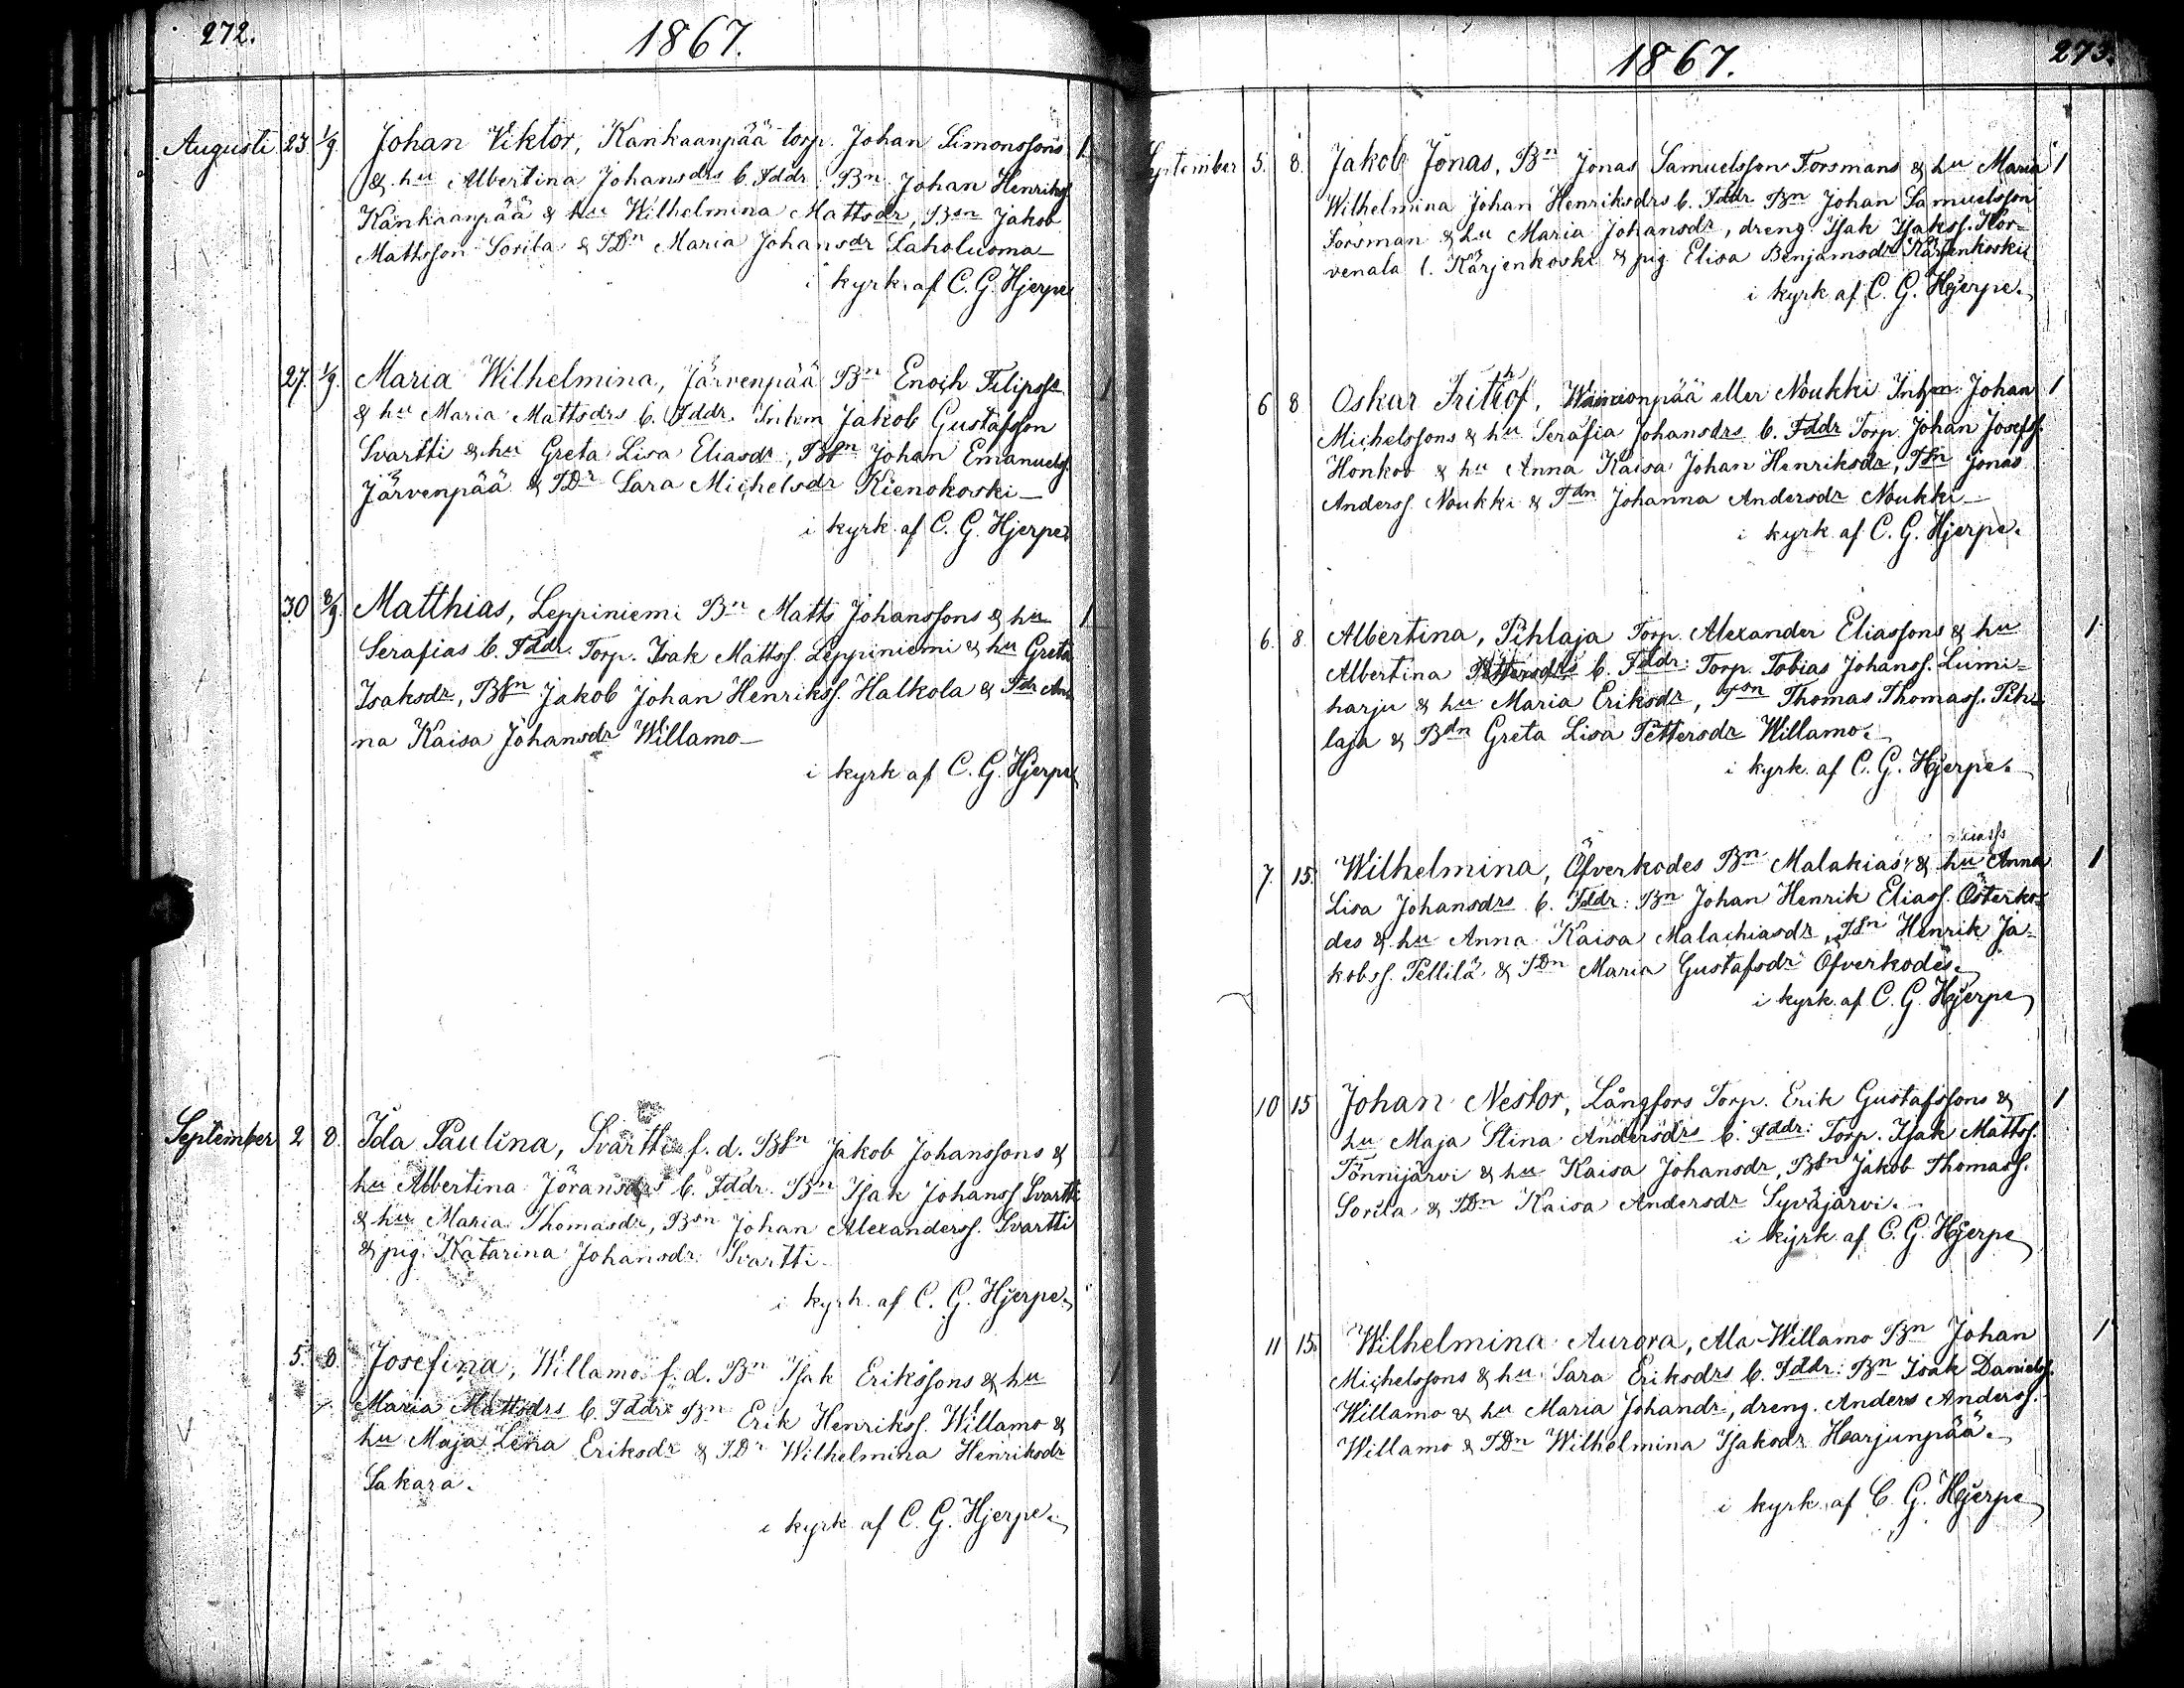 272.
1867.
Augusti 23 1/9. Johan Viktor, Kankaanpää torp. Johan Simonssons 1
& hu Albertina Johansdrs b. Fddr. Bn Johan Henrikss.
Kankaanpää & hu Wilhelmina Mattsdr, Bsn Jakob
Mattsson Sorila & TDn Maria Johansdr Laholuoma
i kyrk. af C. G. Hjerpe
27. 1/9. Maria Wilhelmina, Järvenpää Bn Enoch Filipss. 1
& hu Maria Mattsdrs b. Fddr. Inhm Jakob Gustafsson
Svartti & hu Greta Lisa Eliasdr, Bsn Johan Emanuelss.
Järvenpää & TDr Sara Michelsdr Kienokoski
i kyrk. af C. G. Hjerpe
30 8/9. Matthias, Leppiniemi Bn Matts Johanssons & hu 1
Serafias b. Fddr. Torp. Isak Mattss. Leppiniemi & hu Greta
Isaksdr, Bsn Jakob Johan Henrikss. Halkola & Tdr An
na Kaisa Johansdr Willamo
i kyrk af C. G. Hjerpe
September 2 8. Ida Paulina, Svartti f. d. Bsn Jakob Johanssons & 1
hu Albertina Jöransdrs b. Fddr. Bn Isak Johanss Svartti
& hu Maria Thomasdr, Bsn Johan Alexanderss. Svartti
& pig. Katarina Johansdr. Svartti
i kyrk. af C. G. Hjerpe.
5. 8. Josefina, Willamo f. d. Bn Isak Erikssons & hu 1
Maria Mattsdrs b. Fddr. Bn Erik Henrikss. Willamo &
hu Maja Lena Eriksdr & TDr Wilhelmina Henriksdr
Sakara.
i kyrk af C. G. Hjerpe.
1867.
273.
September 5. 8. Jakob Jonas, Bn Jonas Samuelsson Forsmans & hu Maria 1
Wilhelmina Johan Henriksdrs b. Fddr Bn Johan Samuelsson
Forsman & hu Maria Johansdr, dreng Isak Isakss. Kor-
venala l. Kärjenkoski & pig Elisa Benjamsdr Kärjenkoski
i kyrk af C. G. Hjerpe.
6 8. Oskar Frithiof, Wainionpää eller Noukki Inhm Johan 1
Michelssons & hu Serafia Johansdrs b. Fddr Torp. Johan Josefs.
Honkoo & hu Anna Kaisa Johan Henriksdr, Tsn Jonas
Anderss. Noukki & Tdn Johanna Andersdr Noukki
i kyrk. af C. G. Hjerpe.
6. 8. Albertina, Pihlaja Torp. Alexander Eliassons & hu 1
Albertina Pettersdrs b. Fddr: Torp. Tobias Johanss. Lumi-
harju & hu Maria Eriksdr, Tsn Thomas Thomass. Pih-
laja & Bdn Greta Lisa Pettersdr Willamo.
i kyrk. af C. G. Hjerpe.
7. 15. Wilhelmina, Öfverkodes Bn Malakias & hu Anna 1
Lisa Johansdrs b. Fddr: Bn Johan Henrik Eliass. Österko-
des & hu Anna Kaisa Malachiasdr, Tsn Henrik Ja-
kobss. Pellilä & TDn Maria Gustafsdr Öfverkodes.
i kyrk. af C. G. Hjerpe
10 15 Johan Nestor, Långfors Torp. Erik Gustafssons & 1
hu Maja Stina Andersdrs b. Fddr: Torp. Isak Mattss.
Tönnijärvi & hu Kaisa Johansdr, Bsn Jakob Thomass.
Sorila & TDn Kaisa Andersdr Syväjärvi.
i kyrk. af C. G. Hjerpe
11 15. Wilhelmina Aurora, Ala-Willamo Bn Johan 1
Michelssons & hu Sara Eriksdrs b. Fddr: Bn Isak Danielss.
Willamo & hu Maria Johandr, dreng. Anders Anderss.
Willamo & TDn Wilhelmina Isaksdr Harjunpää.
i kyrk. af C. G. Hjerpe